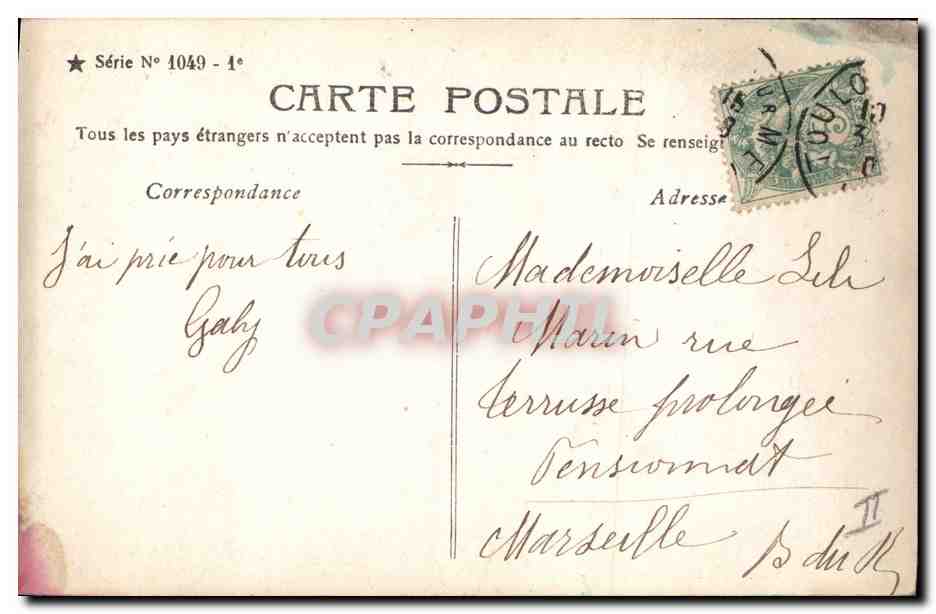 ★ Série Nº 1049 - 1e
CARTE POSTALE
Tous les pays étrangers n'acceptent pas la correspondance au recto Se renseig
Correspondance
Adresse
J'ai prié pour tous
Gaby
Mademoiselle Lili
Marin rue
terrusse prolongée
Pensionnat
Marseille
B du R
II
CPAPHIL
TOULO